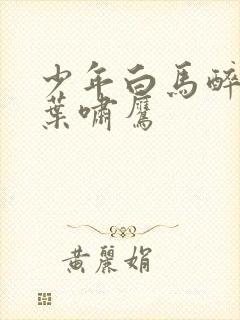 少年白馬醉
葉嘯鷹
黃麗娟